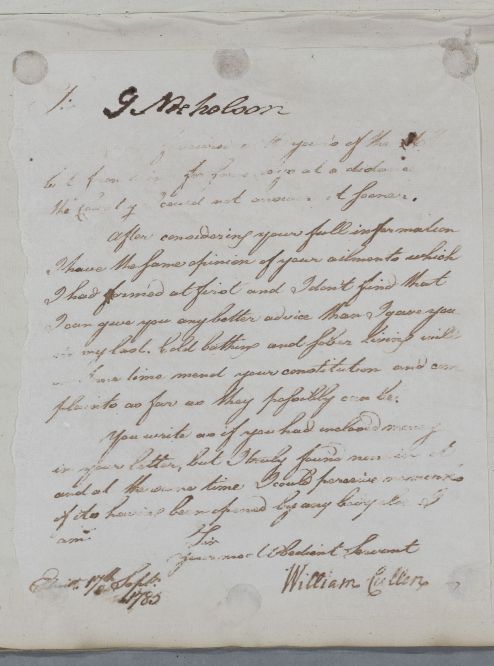 J Nicholson
received yours of the
but from being for some days at a distance
the country I could not answer it sooner.
After considering your full information
I have the same opinion of your ailments which
I had formed at first and I don't find that
I can give you any better advice than I gave you
in my last. Cold bathing and sober living will
time mend your constitution and com
plaints as far as they possibly can be.
You write as if you had inclosed money
in your letter, but I truly found none in it
and at the same time I could perceive no marks
of its having been opened by any body else. I
am Sir
Your most Obedient Servant
Edinr. 17th Septr. William Cullen
1785